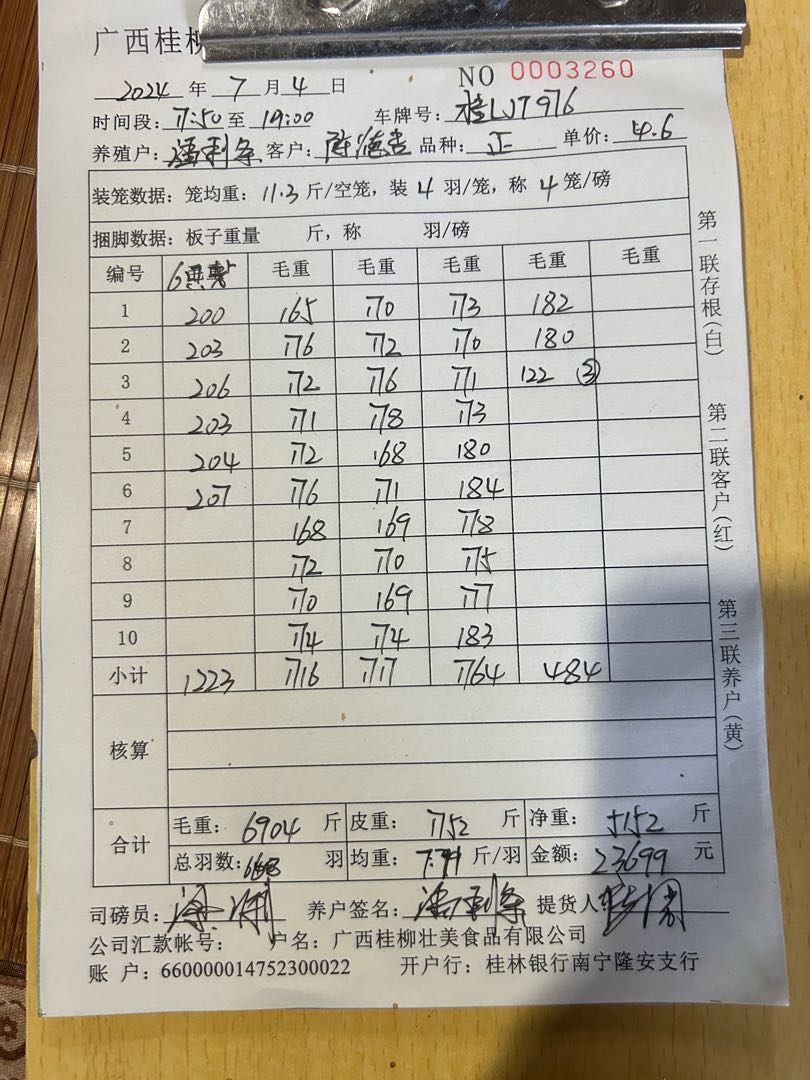 广西桂柳
NO 0003260
2024 年 7 月 4 日
时间段: 17:50 至 19:00 车牌号: 桂LJ7976
养殖户: 潘利 客户: 陈德 品种: 正 单价: 4.6
装笼数据: 笼均重: 11.3 斤/空笼, 装 4 羽/笼, 称 4 笼/磅
捆脚数据: 板子重量 斤, 称 羽/磅
编号 6 毛重 毛重 毛重 毛重 毛重
1 200 165 170 173 182
2 203 176 172 170 180
3 206 172 176 171 122 ③
4 203 171 178 173
5 204 172 168 180
6 207 176 171 184
7 168 169 178
8 172 170 175
9 170 169 177
10 174 174 183
小计 1223 1716 1717 1764 484
核算
合计
毛重: 6904 斤 皮重: 1752 斤 净重: 5152 斤
总羽数: 羽 均重: 斤/羽 金额: 23699 元
司磅员: 养户签名: 潘利 提货人
公司汇款帐号: 户名: 广西桂柳壮美食品有限公司
账 户: 660000014752300022 开户行: 桂林银行南宁隆安支行
第一联存根(白)
第二联客户(红)
第三联养户(黄)